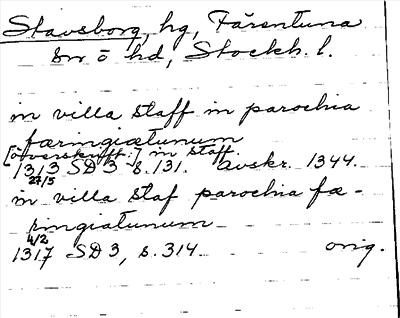 Stavsborg, hg, Färentuna
sn o hd, Stockh. l.
in villa staff in parochia
færingiætunum
[överskrift:] in staff.
1313 27/5 SD 3 s. 131. avskr. 1344.
in villa staf parochia fæ-
ringiatunum
1317 4/2 SD 3, s. 314 orig.